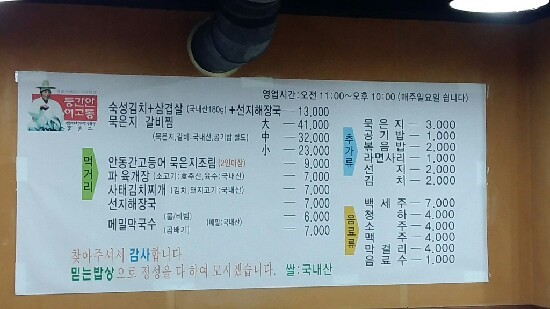 동간안
어고등
영업시간: 오전 11:00~오후 10:00 (매주일요일 쉽니다)
먹거리
숙성김치+삼겹살 (국내산180g) +선지해장국 13,000
묵은지 갈비찜 大 41,000
(묵은지,갈비:국내산,공기밥 별도) 中 32,000
小 23,000
안동간고등어 묵은지조림 (2인이상) 9,000
파 육개장 (소고기:호주산,육수:국내산) 7,000
사태김치찌개 (김치,돼지고기:국내산) 7,000
선지해장국 7,000
메밀막국수 (물/비빔) (메밀:국내산) 6,000
(곱배기) 7,000
추가류
묵은지 3,000
공기밥 1,000
볶음밥 2,000
라면사리 1,000
선지 2,000
김치 2,000
음료류
백세주 7,000
청하 4,000
소주 4,000
맥주 4,000
막걸리 4,000
음료수 1,000
찾아주셔서 감사합니다
믿는밥상으로 정성을 다 하여 모시겠습니다. 쌀:국내산